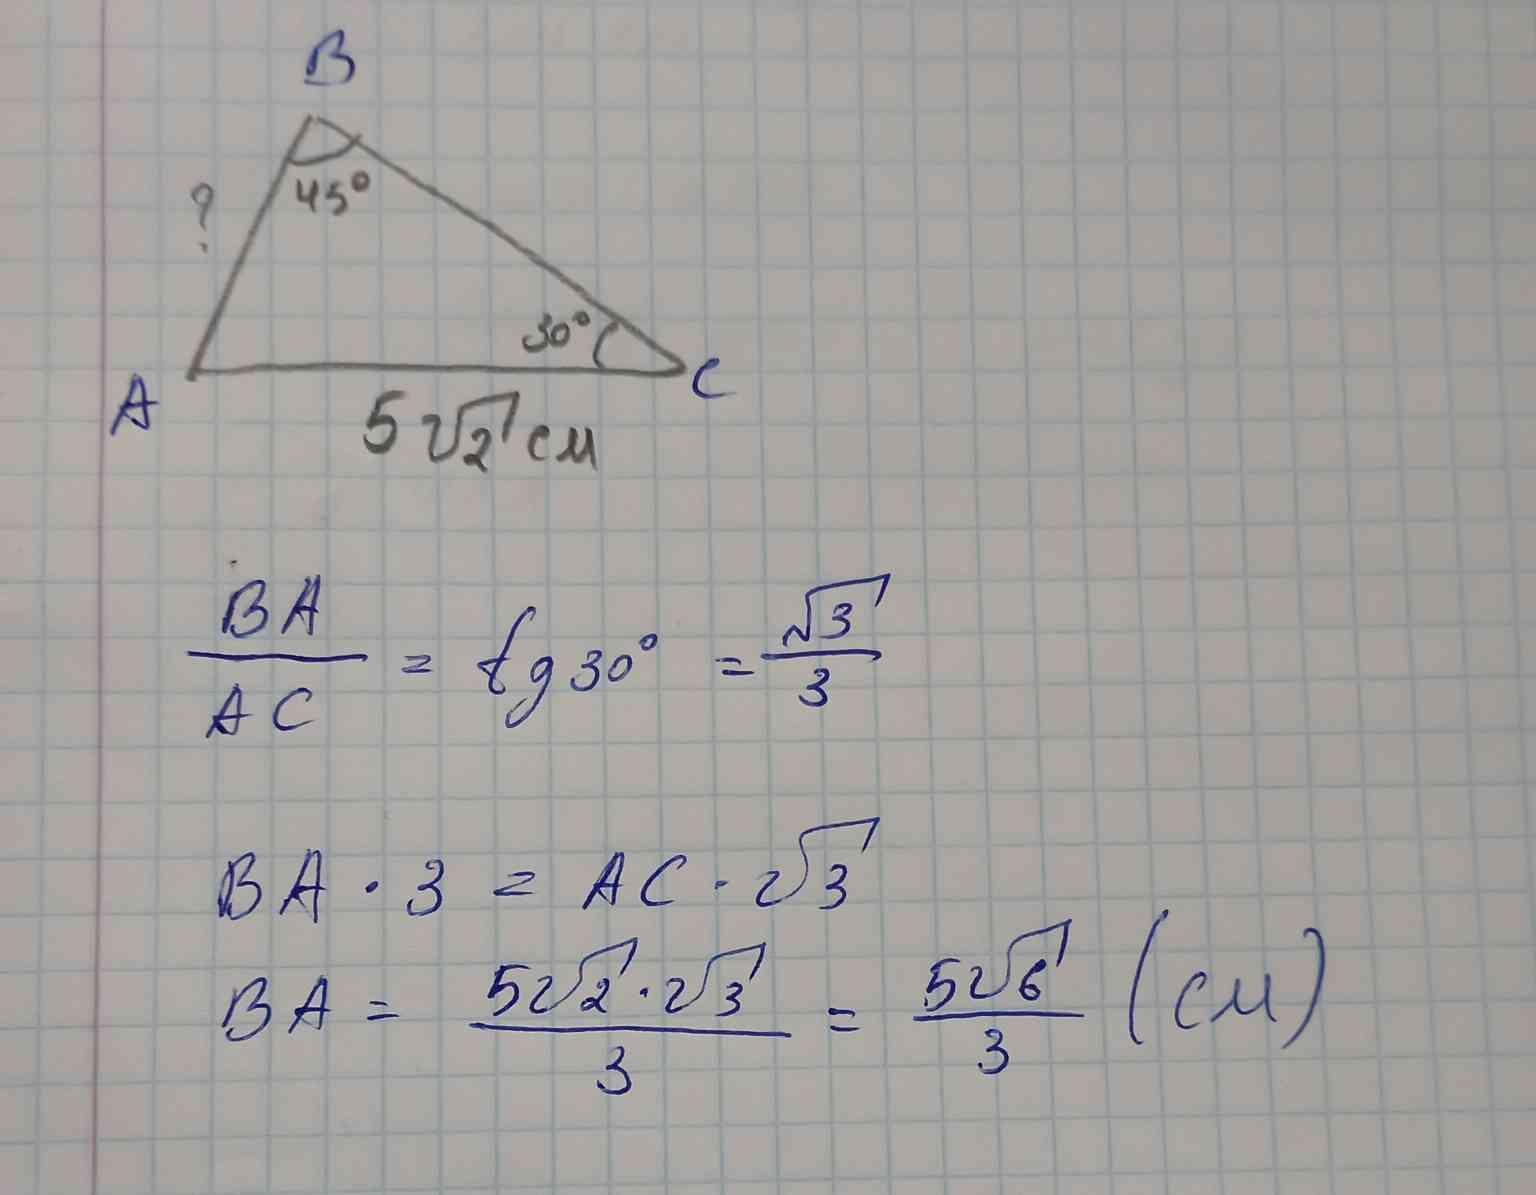 B
?
45°
30°
A
C
5√2 см
BA/AC = tg 30° = √3/3
BA · 3 = AC · √3
BA = 5√2 · √3/3 = 5√6/3 (см)